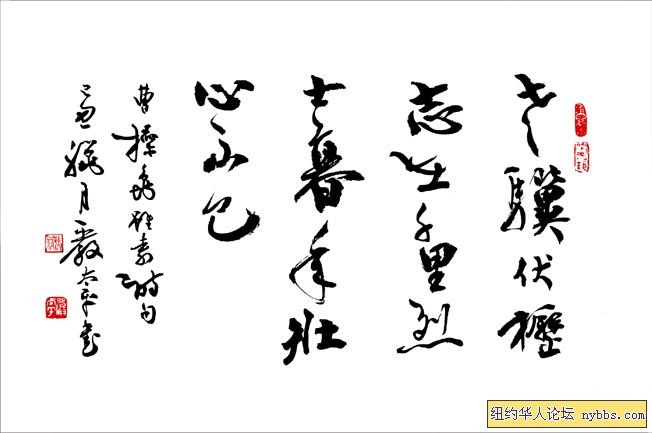 老驥伏櫪
志在千里烈
士暮年壯
心不已
曹操龜雖壽詩句
臘月嚴太平書
纽约华人论坛 nybbs.com